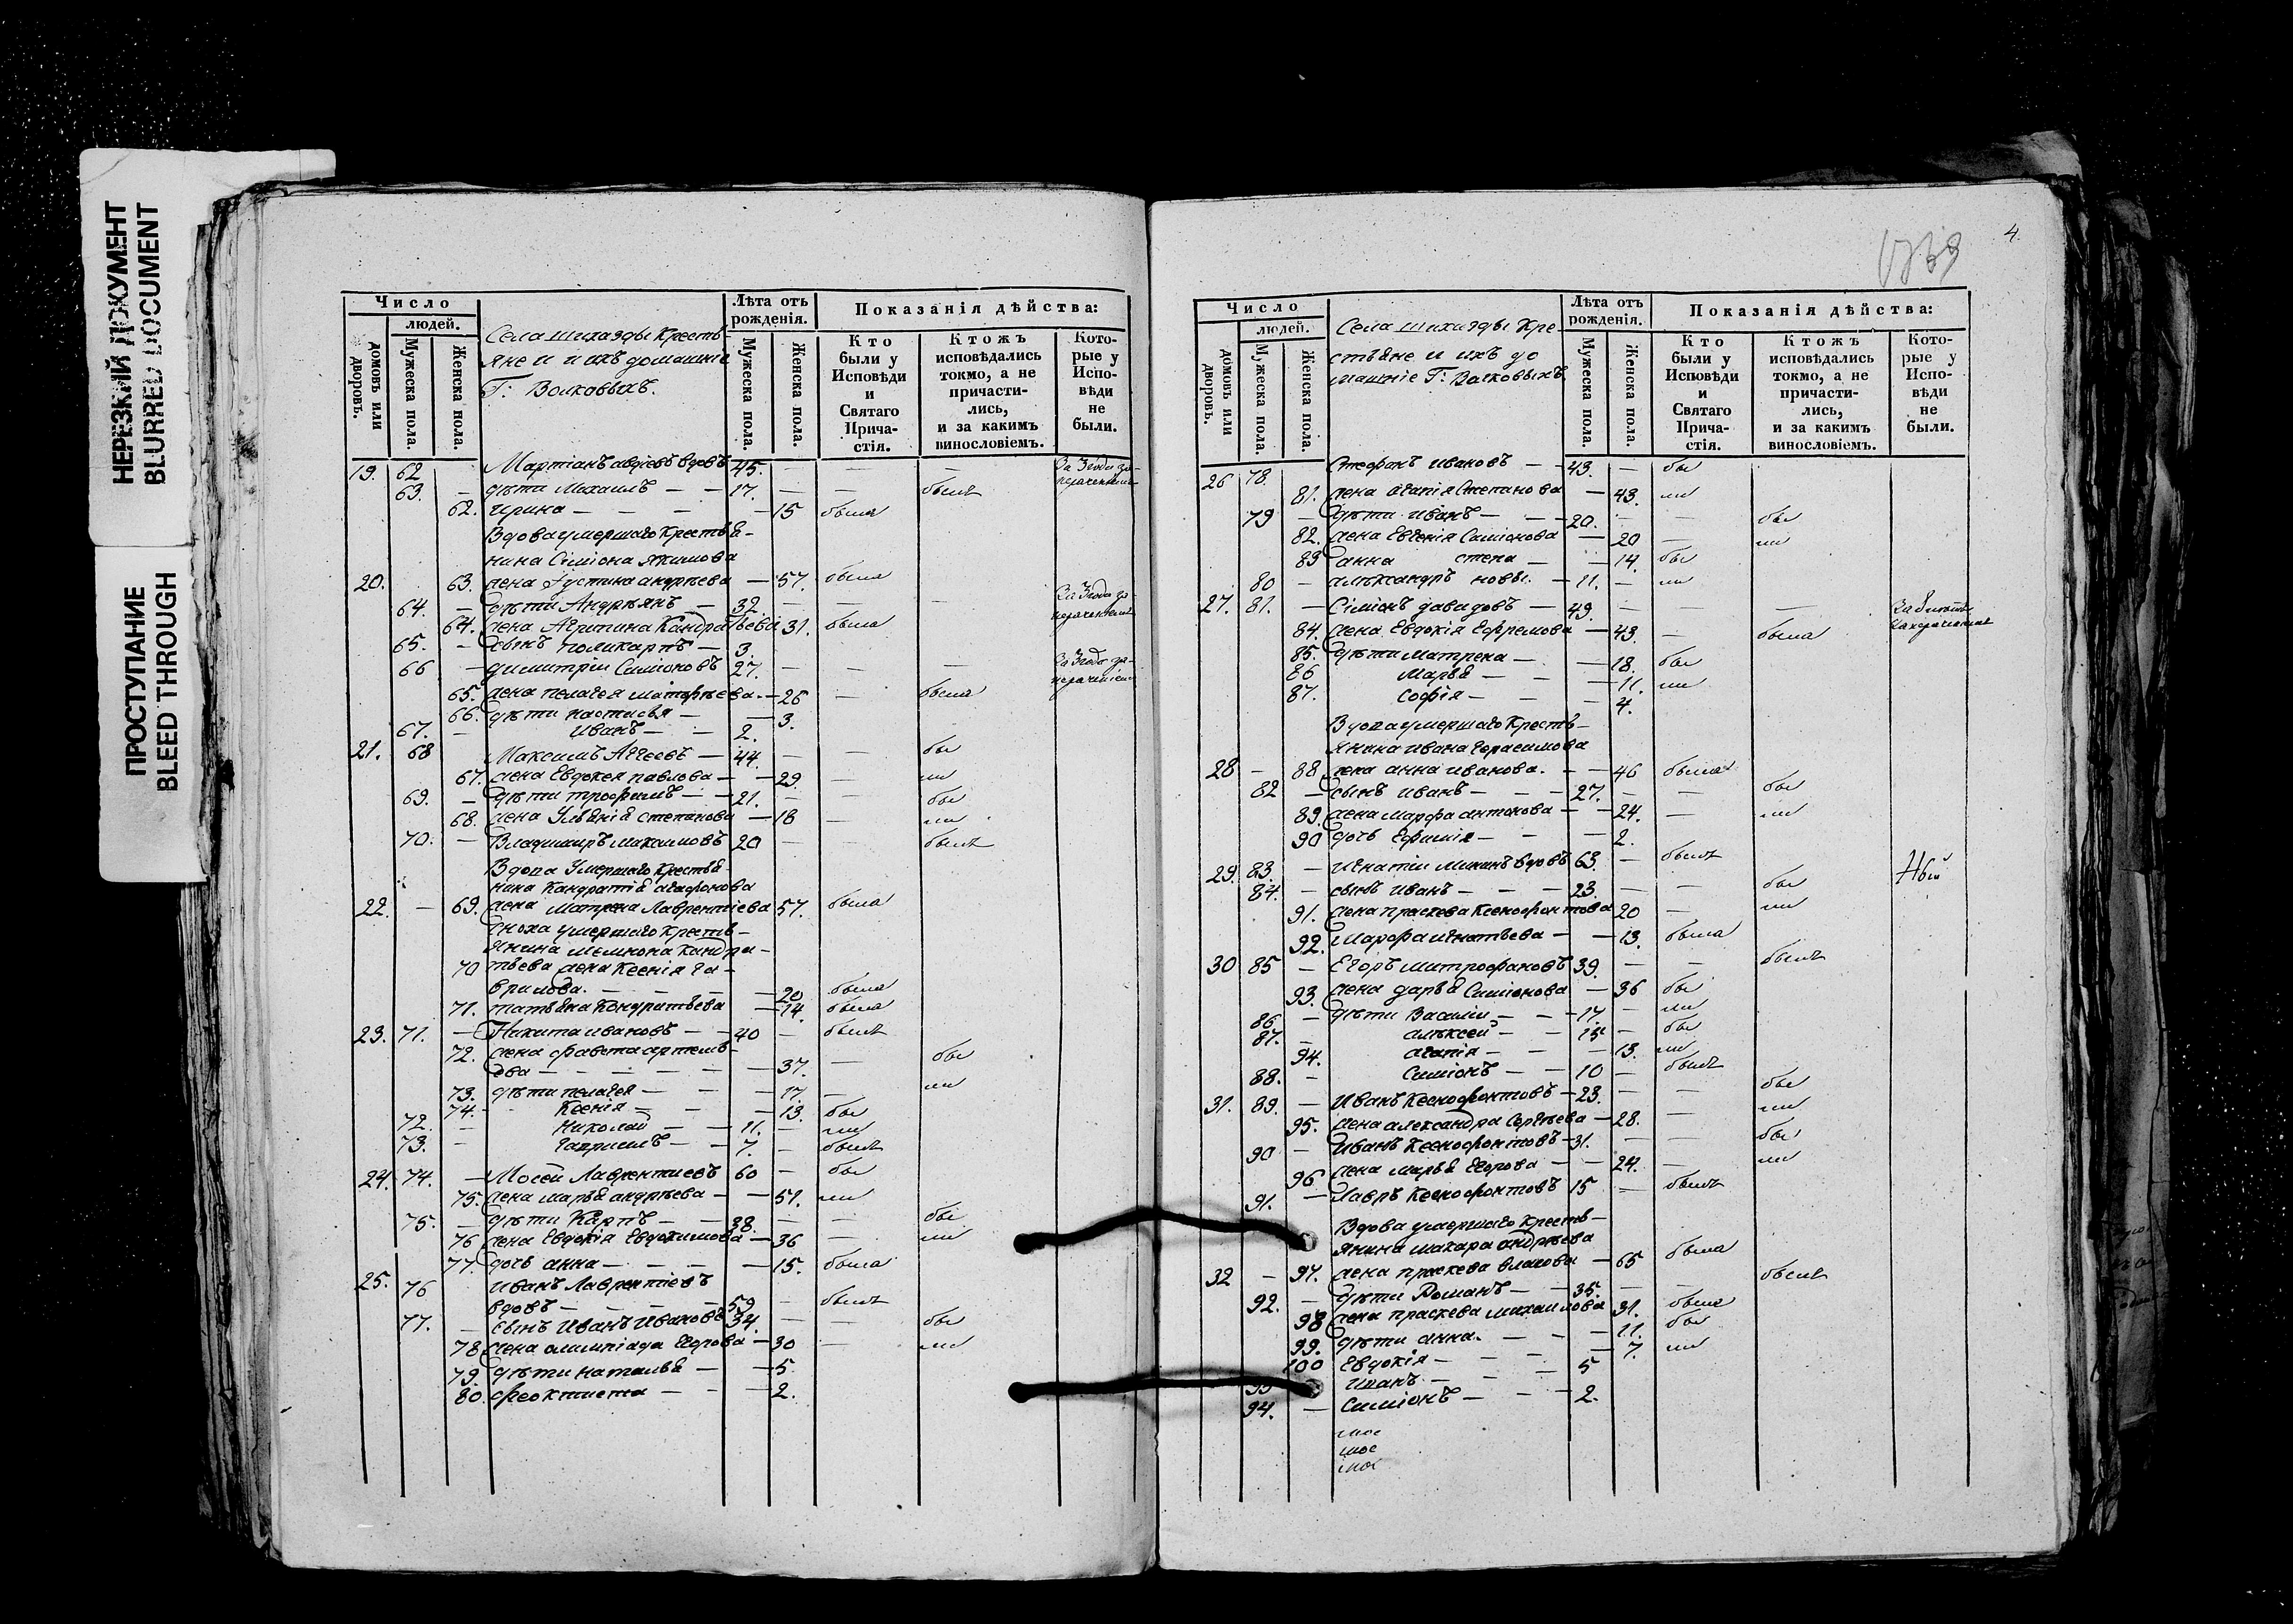 НЕРЕЗКИЙ ДОКУМЕНТ
BLURRED DOCUMENT
ПРОСТУПАНИЕ
BLEED THROUGH
Число
людей.
домовъ или дворовъ.
Мужеска пола.
Женска пола.
Села Шихазды Кресть-
яне и ихъ домашніе
Г: Волковыхъ.
Лѣта отъ рожденія.
Мужеска пола.
Женска пола.
Показанія дѣйства:
Кто были у Исповѣди и Святаго Прича-стія.
Ктожъ исповѣдались токмо, а не причасти-лись, и за какимъ винословіемъ.
Кото-рые у Испо-вѣди не были.
19. 62 Мартіанъ авдіевъ вдовъ 45. — — —
63. — дѣти Михаилъ — — 17. — — былъ
62. Ирина — — — — 15 была
Вдова умершаго Крестья-
нина Сіміона Якимова
20. 63. жена Іустина андрѣева — 57. была
64. — дѣти Андреянъ — 32. — — —
64. жена Агрипина Кандратьева 31. была
65. — сынъ поликарпъ — 3.
66 — димитріи Симіоновъ 27. — — —
65. жена пелагея матфѣева — 26 — была
66. дѣти настасья — — 3.
67. — иванъ — — 2.
21. 68 Максимъ Агѣевъ — 44. — — бы
67. жена Евдокея павлова — — 29. — ли
69. — дѣти трофимъ — — 21. — — бы
68. жена Ульянія степанова — 18 — ли
70. — Владимиръ максимовъ 20 — — былъ
Вдова Умершаго Крестья
нина Кандратія агафонова
22. — 69. жена матрена Лаврентіева 57. была
Сноха умершаго Кресть-
янина мемнона Кандра-
70 тьева жена Ксенія Га-
врилова. — — — — 20 была
71. татьяна Кондратьева — 14 была
23. 71. — Никита ивановъ — — 40 — былъ
72. жена фавста артемь-
ева — — — — — 37. — бы
73. дѣти пелагея — — — 17. — ли
74. Ксенія — — — 13. бы
72. — Николай — — 11. — ли
73. — Гавриилъ — — 7. — былъ
24. 74. — Мосей Лаврентиевъ 60 — бы
75. жена марья андрѣева — — 51. ли
75. — дѣти Карпъ — — 38. — — бы
76 жена Евдокія Евдокимова — 36 — ли
77. дочь анна — — — — 15. была
25. 76 иванъ Лаврентіевъ
вдовъ — — — — 59 — былъ
77. — сынъ Иванъ Ивановъ 34. — — бы
78 жена олимпіада Егорова — 30 — ли
79. дѣти наталья — — 5.
80. феоктиста — — — 2.
4.
Число
людей.
домовъ или дворовъ.
Мужеска пола.
Женска пола.
Села Шихазды Кре-
стьяне и ихъ до
машніе Г: Волковыхъ
Лѣта отъ рожденія.
Мужеска пола.
Женска пола.
Показанія дѣйства:
Кто были у Исповѣди и Святаго Прича-стія.
Ктожъ исповѣдались токмо, а не причасти-лись, и за какимъ винословіемъ.
Кото-рые у Испо-вѣди не были.
26 78. Стефанъ ивановъ — — 43. — бы
81. жена агапія Степанова — 43. ли
79 — дѣти иванъ — — — 20. — — бы
82. жена Евгенія Симіонова — 20 — ли
83 анна степа — — 14. бы
80 — алѣксандръ новы. — 11. — ли
27. 81. — Сіміонъ давидовъ — 49. — —
84. жена Евдокія Ефремова — 43. — была
85. дѣти матрена — — 18. бы
86 марья — — — 11. ли
87. софія — — — 4.
Вдова умершаго Кресть-
янина ивана герасимова
28 — 88 жена анна иванова. — — 46 была
82 — сынъ иванъ — — — 27. — — бы
89. жена марфа антонова — — 24. — ли
90 дочь Ефимія — — — 2.
29. 83. — игнатіи вдовъ 63. — былъ
84. — сынъ иванъ — — — 23. — — бы
91. жена праскева Ксенофонтова 20 — ли
92. марфа игнатьева — — 13. была
30 85 — Егоръ митрофановъ 39. — — былъ
93. жена дарья Симіонова — 36 бы
86 — дѣти Василіи — — — 17. — ли
87. — алѣксей — — 15 — бы
94. агапія — — — 13. ли
88. — Симіонъ — — 10 — былъ
31. 89. — иванъ Ксенофонтовъ — 23. — — бы
95. жена александра Сергѣева — 28. — ли
90 — иванъ Ксенофонтовъ — 31. — — бы
96 жена марья Егорова — — 24. — ли
91. — Лавръ Ксенофонтовъ 15 — былъ
Вдова умершаго Кресть-
янина макара андрѣева
32 — 97. жена праскева влакова — 65 была
92. — дѣти Романъ — — 35. — — былъ
98 жена праскева михаилова 31. была
99. дѣти анна. — — — 11. бы
100 Евдокія — — — 7. ли
93 иванъ — — — 5
94. — Симіонъ — — — 2.